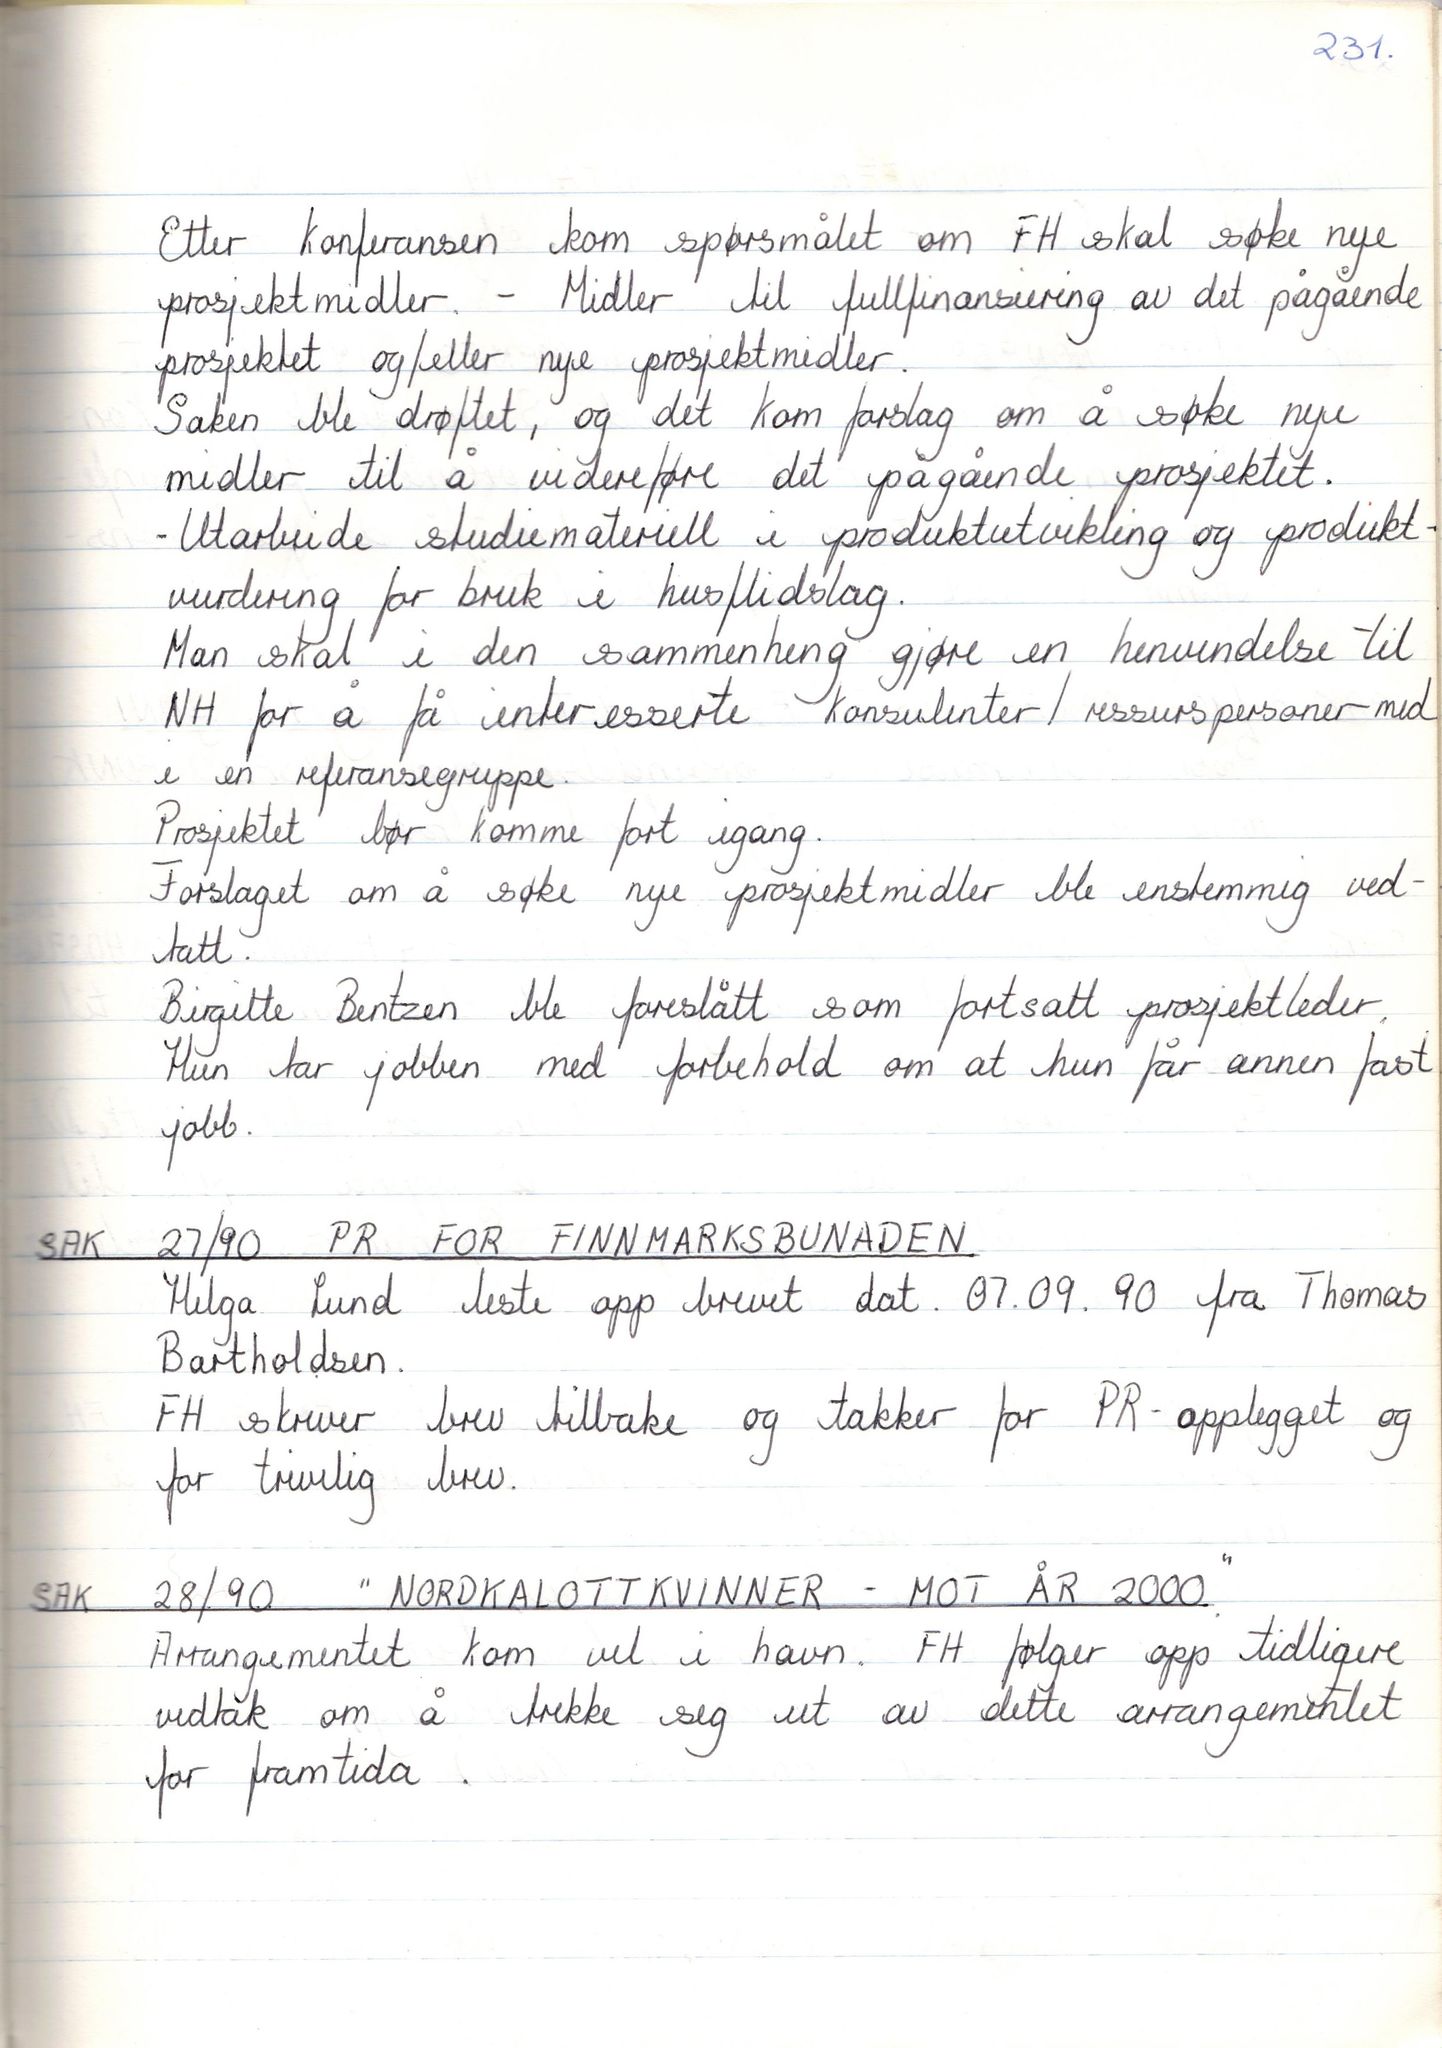 231.
Etter konferansen kom spørsmålet om FH skal søke nye
prosjektmidler. - Midler til fullfinansiering av det pågående
prosjektet og/eller nye prosjektmidler.
Saken ble drøftet, og det kom forslag om å søke nye
midler til å videreføre det pågående prosjektet.
- Utarbeide studiemateriell i produktutvikling og produkt-
vurdering for bruk i husflidslag.
Man skal i den sammenheng gjøre en henvendelse til
NH for å få interesserte konsulenter/ressurspersoner med
i en referansegruppe.
Prosjektet bør komme fort igang.
Forslaget om å søke nye prosjektmidler ble enstemmig ved-
tatt.
Birgitte Bentzen ble foreslått som fortsatt prosjektleder.
Hun tar jobben med forbehold om at hun får annen fast
jobb.
SAK 27/90 PR FOR FINNMARKSBUNADEN
Helga Lund leste opp brevet dat. 07.09.90 fra Thomas
Bartholdsen.
FH skriver brev tilbake og takker for PR-opplegget og
for trivelig brev.
SAK 28/90 "NORDKALOTTKVINNER - MOT ÅR 2000."
Arrangementet kom vel i havn. FH følger opp tidligere
vedtak om å trekke seg ut av dette arrangementet
for framtida.